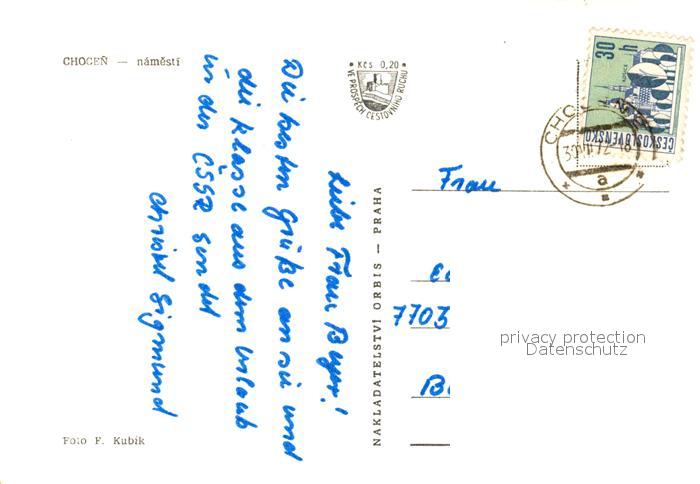 CHOCEŇ — náměstí
Kčs 0,20
VE PROSPĚCH CESTOVNÍHO RUCHU
Liebe Frau Beyer!
Die besten Grüße an sie und
die Klasse aus dem Urlaub
in der ČSSR sendet
Christel Sigmund
NAKLADATELSTVÍ ORBIS — PRAHA
30 h
ČESKOSLOVENSKO
CHOCEŇ
a
Frau
7703
privacy protection
Datenschutz
Foto F. Kubík